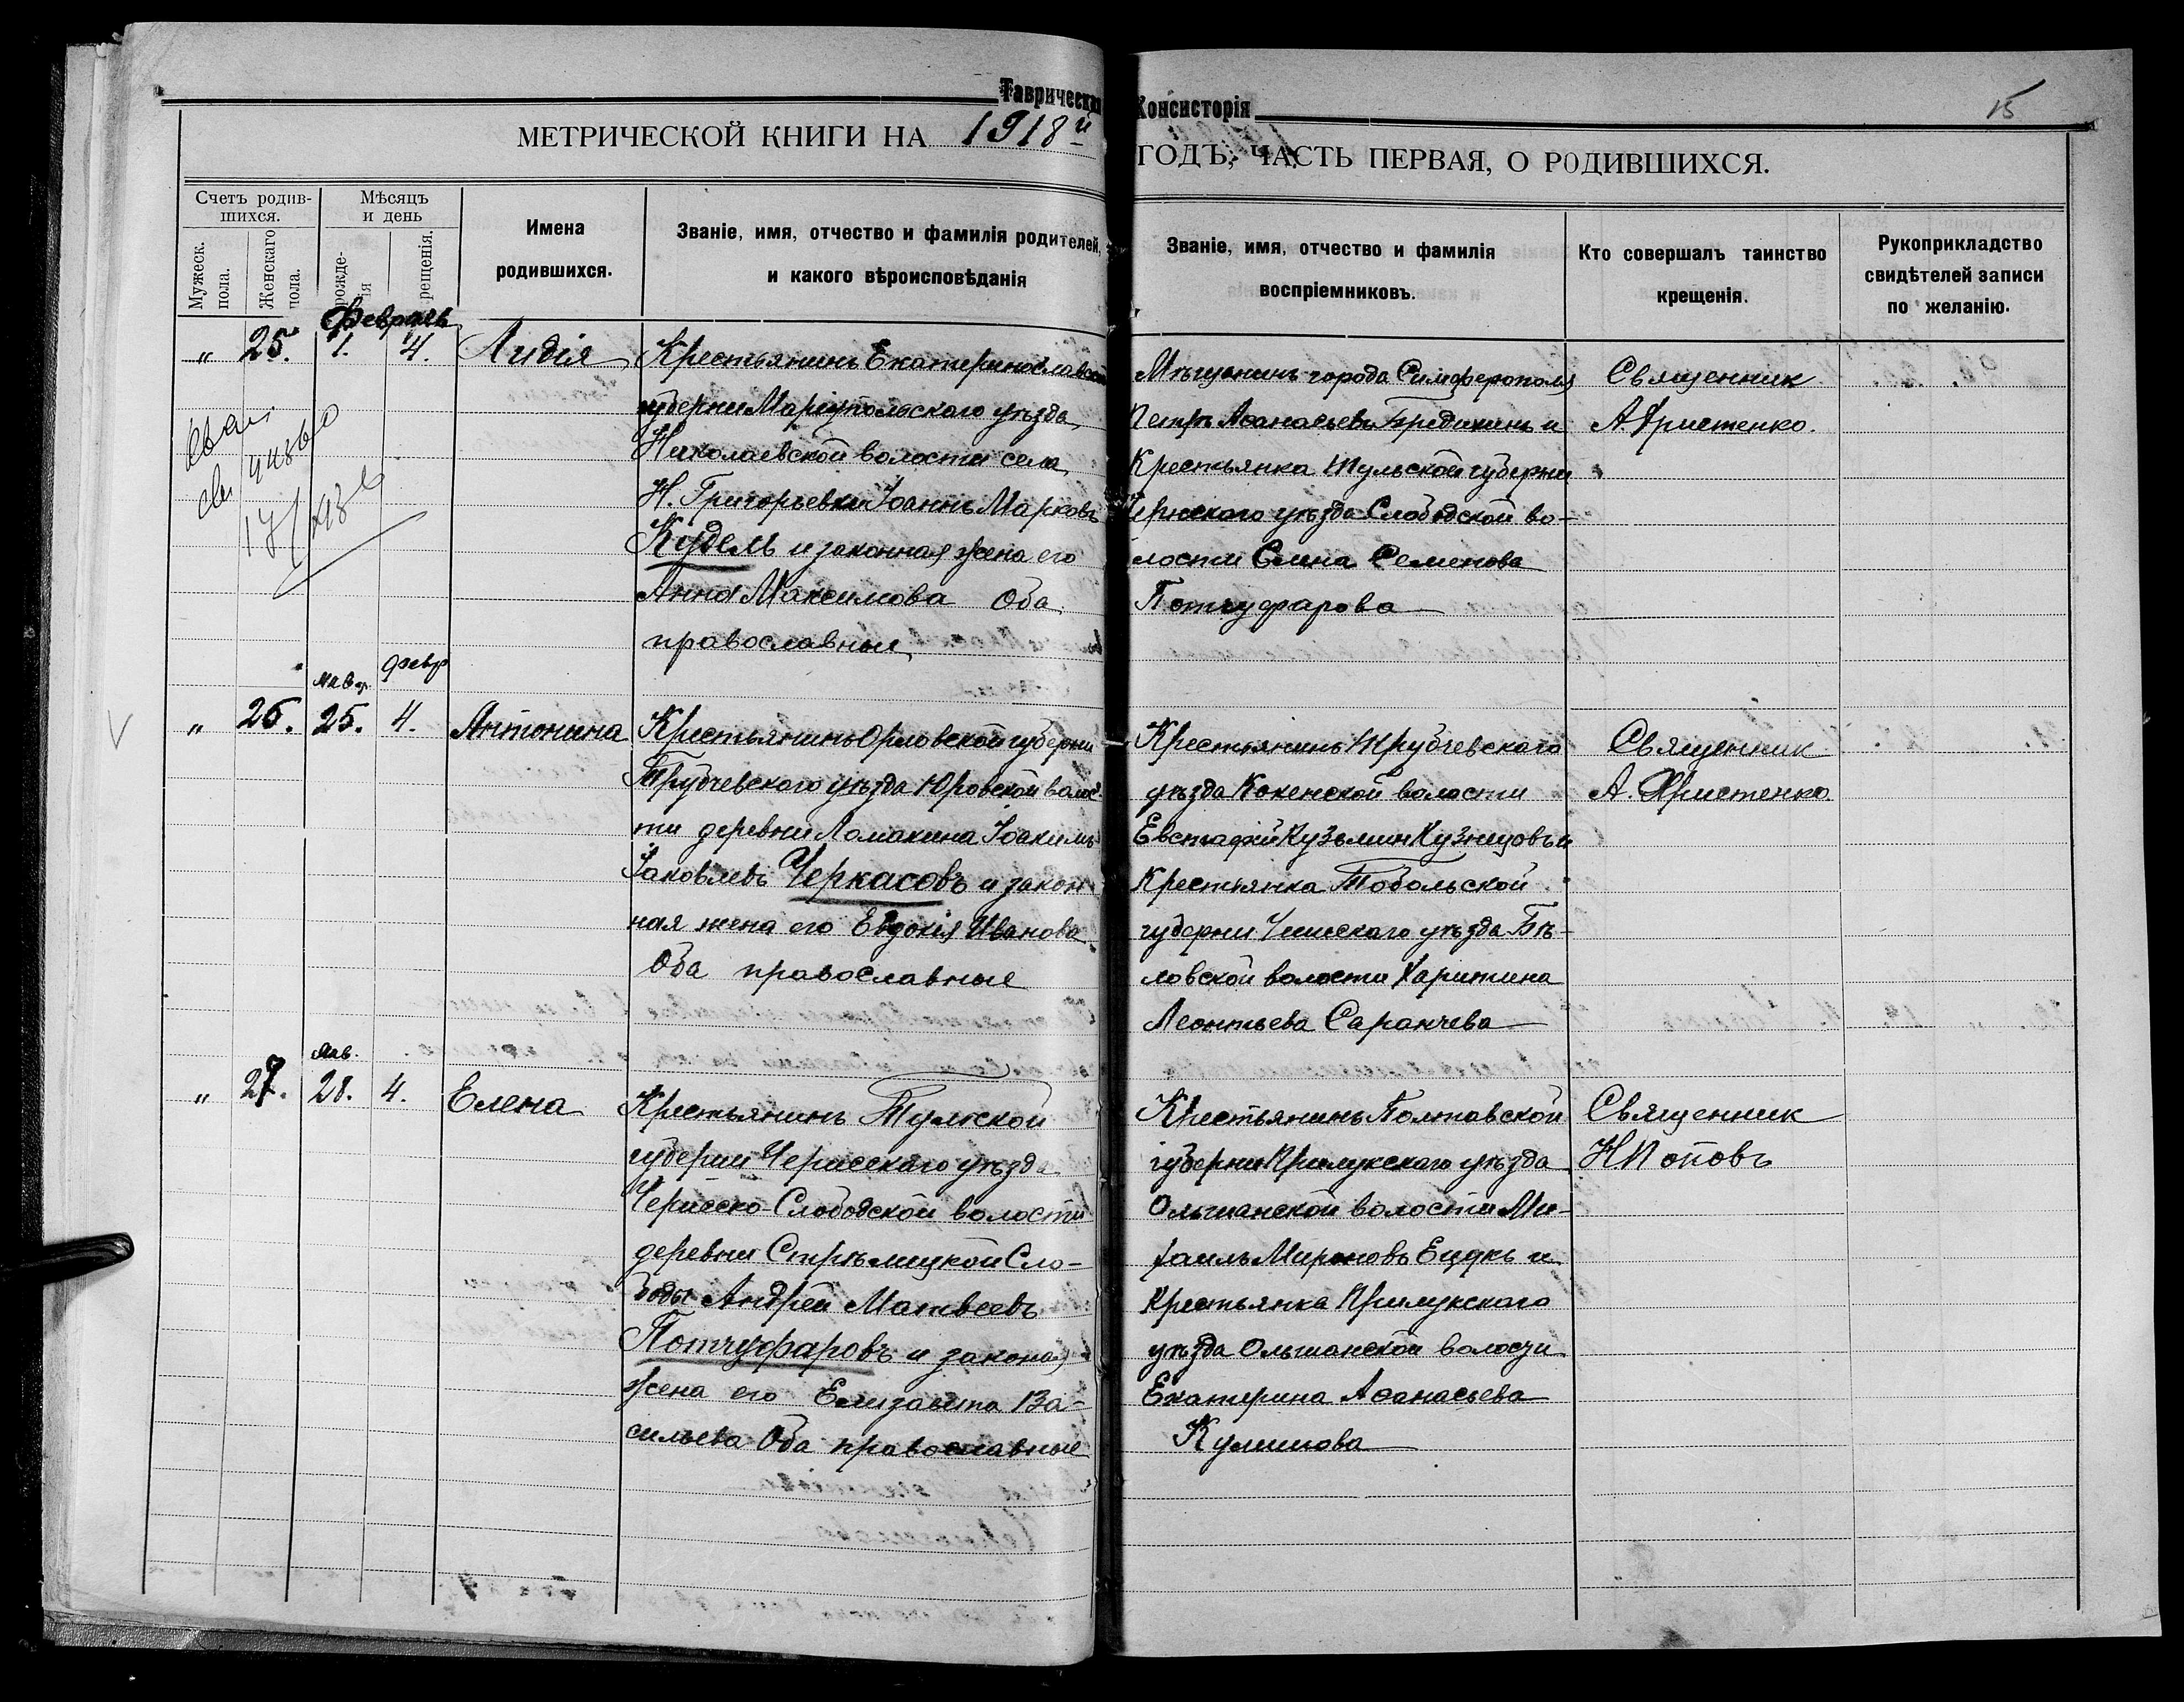 Таврическая Консисторія
15
МЕТРИЧЕСКОЙ КНИГИ НА 1918й ГОДЪ, ЧАСТЬ ПЕРВАЯ, О РОДИВШИХСЯ.
Счетъ родив-
шихся.
Мужеск. пола.
Женскаго пола.
Мѣсяцъ
и день
рожде-
нія
крещенія.
Имена
родившихся.
Званіе, имя, отчество и фамилія родителей,
и какого вѣроисповѣданія
Званіе, имя, отчество и фамилія
воспріемниковъ.
Кто совершалъ таинство
крещенія.
Рукоприкладство
свидѣтелей записи
по желанію.
Февраль
„ 25. 1. 4. Лидія
Крестьянинъ Екатеринославской
губерни Маріупольскаго уѣзда
Николаевской волости села
Н. Григорьевки Іоаннъ Марковъ
Кудель и законная жена его
Анна Максимова Оба
православные
Мѣщанинъ города Симферополя
Петръ Аѳанасьевъ Бредихинъ и
Крестьянка Тульской губерни
Чернскаго уѣзда Слободской во-
лости Елена Семенова
Потчуфарова
Священник
А. Христенко.
Янвр. февр
„ 26. 25. 4. Антонина
Крестьянинъ Орловской губерни
Трубчевскаго уѣзда Юровской волос
ти деревни Ломакина Іоакимъ
Іаковлевъ Черкасовъ и закон
ная жена его Евдокія Иванова
Оба православные
Крестьянинъ Трубчевскаго
уѣзда Кокенской волости
Евстафій Кузьмин Кузнецовъ и
Крестьянка Тобольской
губерни Ишимскаго уѣзда Бѣ-
ловской волости Харитина
Леонтьева Саранчева
Священник
А. Христенко.
Янв.
„ 27. 28. 4. Елена
Крестьянинъ Тульской
губерни Чернскаго уѣзда
Чернско-Слободской волости
деревни Стрѣлицкой Сло-
боды Андрей Матвеевъ
Потчуфаровъ и законая
жена его Елизавета Ва-
сильева Оба православные
Крестьянинъ Полтавской
губерни Прилукскаго уѣзда
Ольшанской волости Ми-
хаилъ Мироновъ Ецукъ и
Крестьянка Прилукскаго
уѣзда Ольшанской волости
Екатерина Аѳанасьева
Кулишова
Священник
Н Поповъ